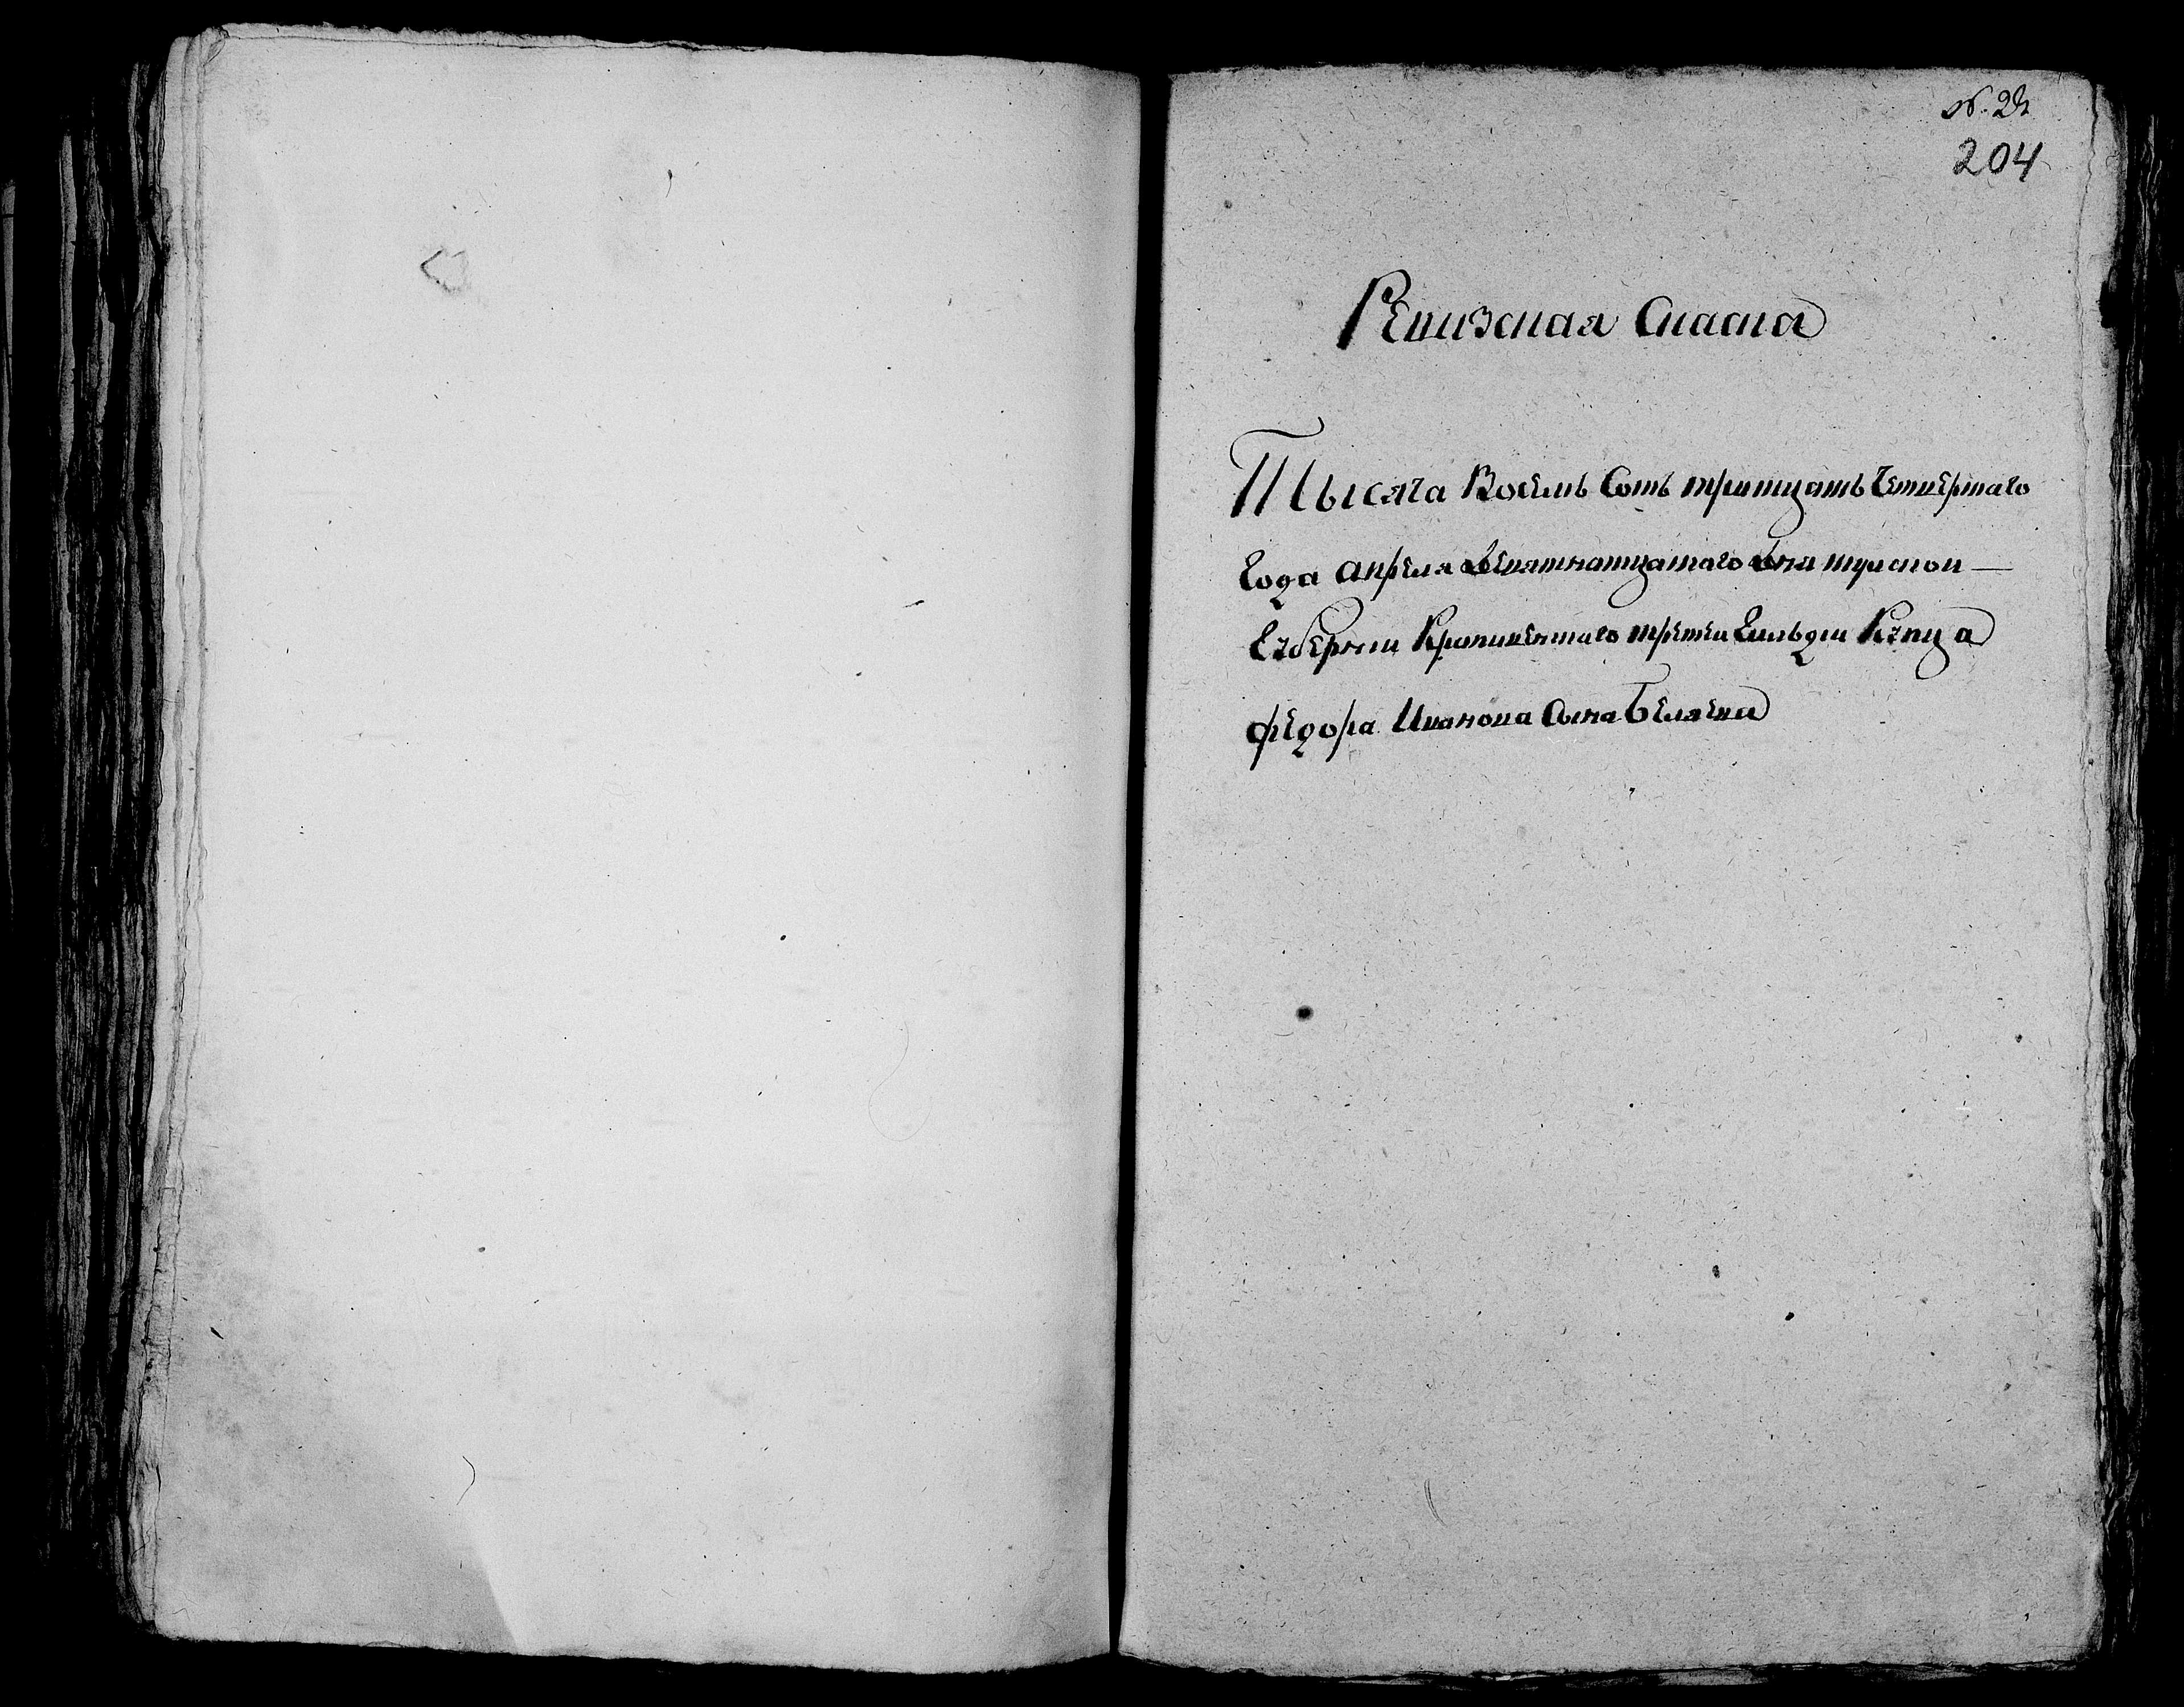 204
Ревизская Сказка
Тысяча Восемь Сотъ тритцать Четвертаго
Года апреля Девятнатцатаго дня тульской —
Губернии Крапивенскаго третей Гильдии Купца
федора Иванова Сына Беляева